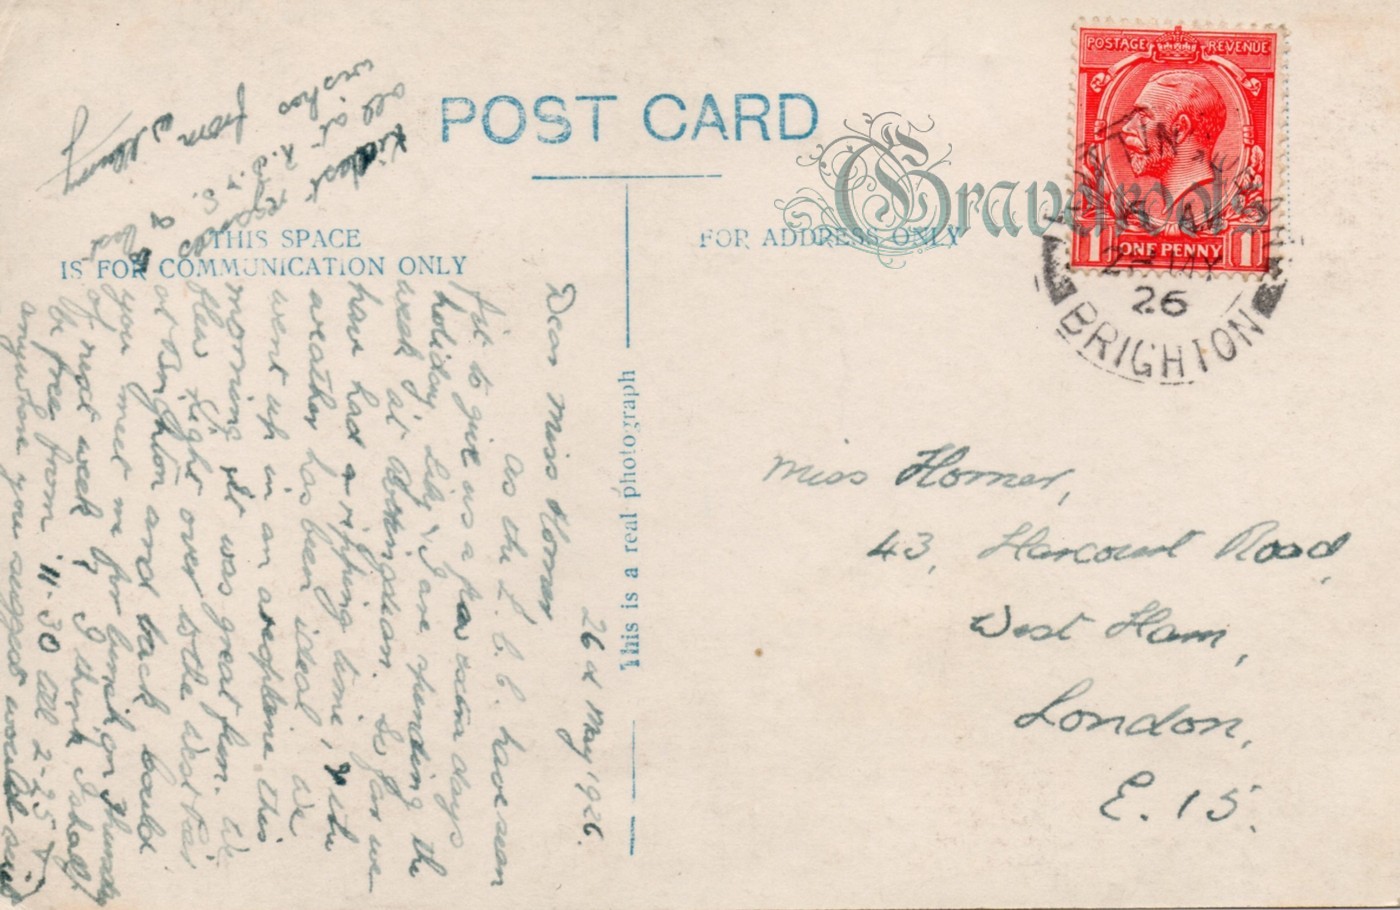 POST CARD
THIS SPACE
IS FOR COMMUNICATION ONLY
FOR ADDRESS ONLY
This is a real photograph
Gravelroots
POSTAGE REVENUE
1 ONE PENNY 1
26
BRIGHTON
Miss Horner,
43, Harcourt Road,
West Ham,
London,
E. 15.
26th May 1926.
Dear Miss Horner,
As the L. C. C. have seen
fit to give us a few extra days
holiday, Lily & I are spending the
week at . So far we
have had a ripping time, & the
weather has been ideal. We
went up in an aeroplane this
morning. It was great fun. We
flew right over to the West Pier
at Brighton and back. Could
you meet me for lunch on Thursday
of next week? I think I shall
be free from 11-30 till 2-25 &
anywhere you suggest would suit
Kindest regards &
wishes
from